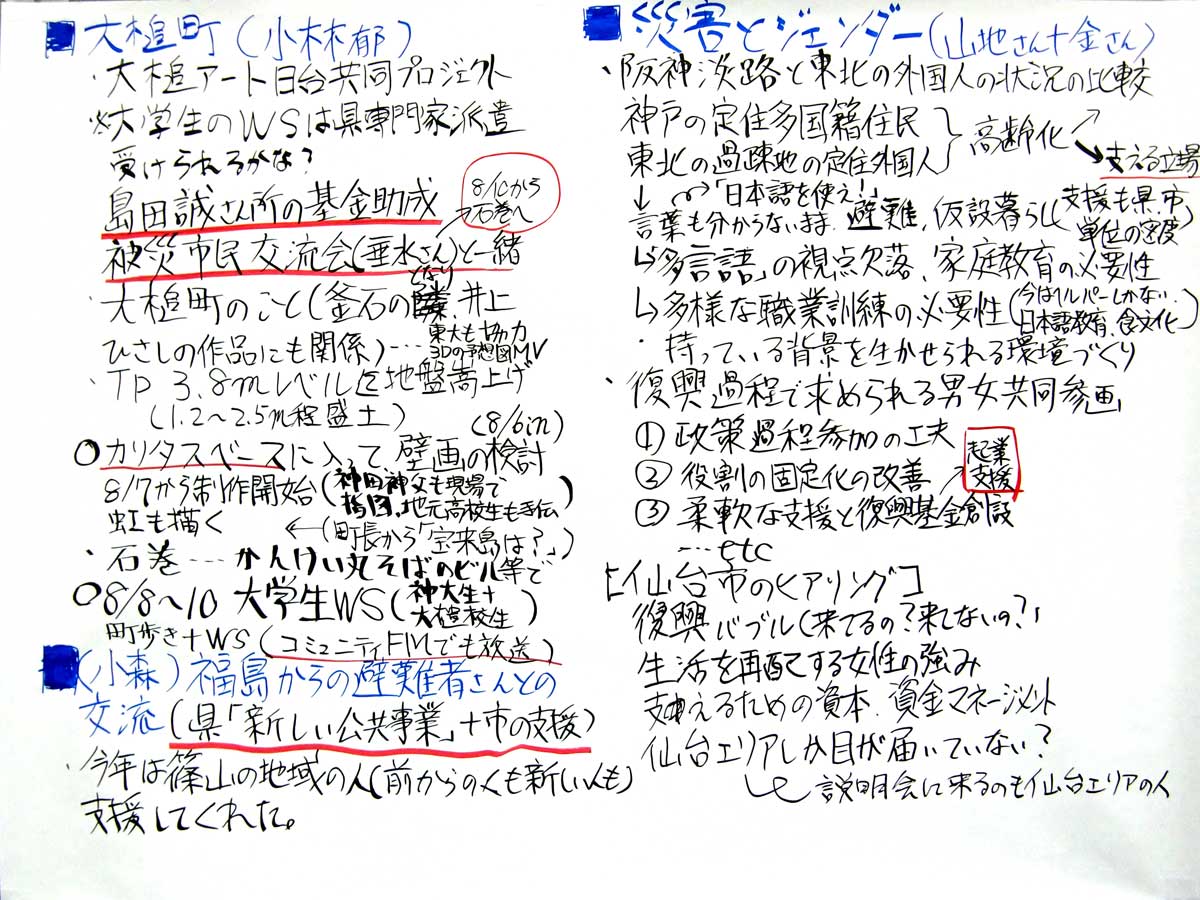 大槌町(小林郁)
・大槌アート日台共同プロジェクト
※大学生のWSは県専門家派遣
受けられるかな?
島田誠さん所の基金助成
8/10から
→石巻へ
被災市民交流会(垂水さん)と一緒
となり
・大槌町のこと(釜石の隣、井上
ひさしの作品にも関係)‥‥東大も協力
3Dの予想図MV
・TP 3.8mレベルに地盤嵩上げ
(1.2〜2.5m程盛土)
(8/6in)
○カリタスベースに入って壁画の検討
8/7から制作開始(神田神父も現場で
指図、地元高校生も手伝)
虹も描く ←(町長から「宝来島は?」)
・石巻‥‥かんけい丸そばのビル等で
○8/8〜10 大学生WS(神大生+
大槌校生)
町歩き+WS(コミュニティFMでも放送)
(小森)福島からの避難者さんとの
交流(県「新しい公共事業」+市の支援)
・今年は篠山の地域の人(前からの人も新しい人も)
支援してくれた。
災害とジェンダー(山地さん+金さん)
・阪神淡路と東北の外国人の状況の比較
神戸の定住多国籍住民
東北の過疎地の定住外国人
高齢化
支える立場
↓「日本語を使え!」
言葉も分からないまま避難、仮設暮らし(支援も県・市
単位の密度)
↳「多言語」の視点欠落、家庭教育の必要性
↳多様な職業訓練の必要性(今はヘルパーしかない、
日本語教育、食文化)
・持っている背景を生かせられる環境づくり
・復興過程で求められる男女共同参画
① 政策過程参加の工夫
② 役割の固定化の改善
起業
支援
③ 柔軟な支援と復興基金創設
‥‥etc
[仙台市のヒアリング]
復興バブル(来てるの?来てないの?)
生活を再配する女性の強み
支えるための資本、資金マネージメント
仙台エリアしか目が届いていない?
↳説明会に来るのも仙台エリアの人